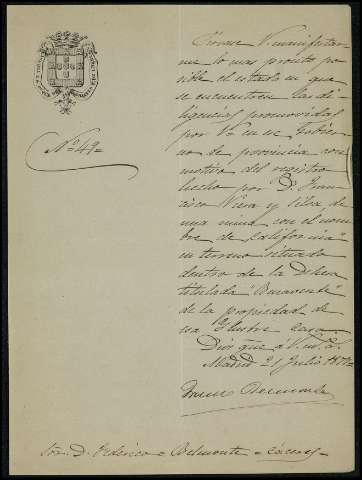 Nº 49=
Sírvase V. manifestar-
me lo mas pronto po-
sible el estado en que
se encuentren las di-
ligencias promovidas
por V. en ese Gobier-
no de provincia con
motivo del registro
hecho por D. Fran-
cisco Viera y Silva de
una mina con el nom-
bre de "California"
en terreno situado
dentro de la Dehesa
titulada "Benavente"
de la propiedad de
esa Ilustre Casa.
Dios gue á V. m. a.
Madrid 21 Julio 1872
Belmonte
Sor. D. Federico Belmonte = Cáceres =